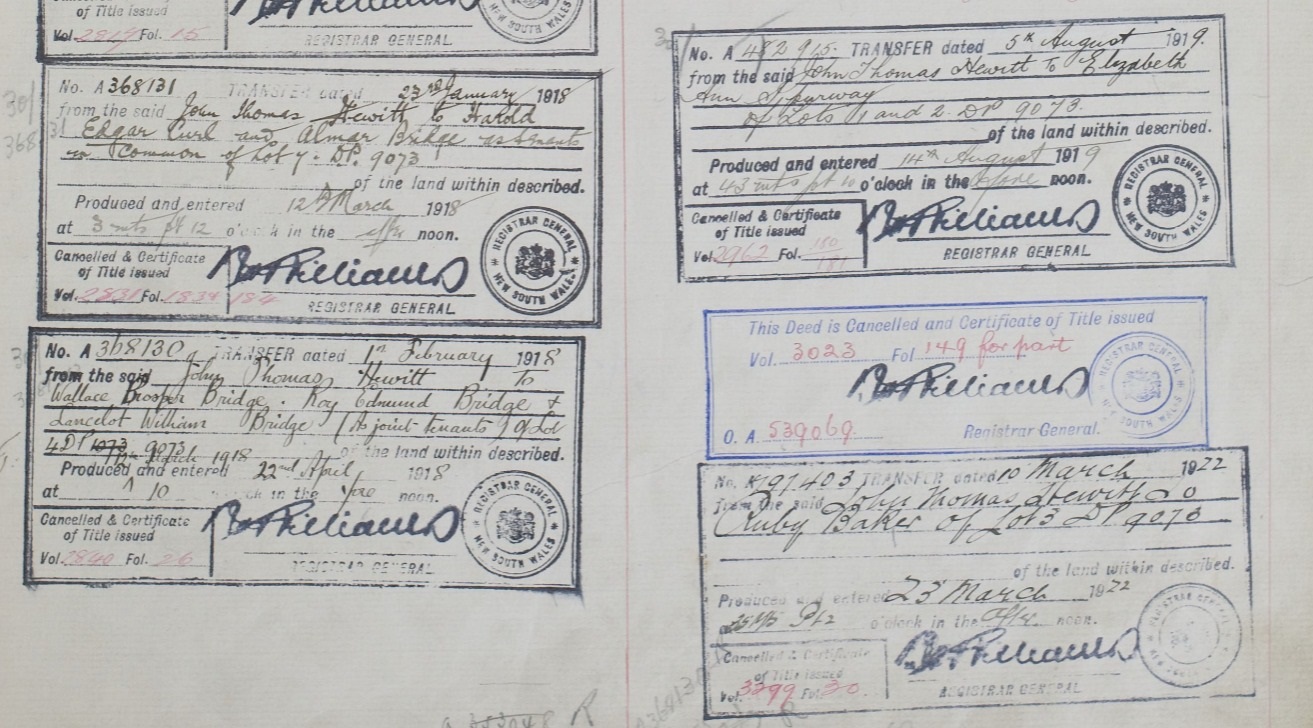 Cancelled & Certificate
of Title issued
Vol. 2819 Fol. 15
REGISTRAR GENERAL
No. A 368131 TRANSFER dated 23rd January 1918
from the said John Thomas Hewitt to Harold
Edgar Curl and Almar Bridge as tenants
in Common of Lot 7. DP. 9073
of the land within described.
Produced and entered 12th March 1918
at 3 mts pt 12 o'clock in the after noon.
Cancelled & Certificate
of Title issued
Vol. 2831 Fol. 183 & 184
REGISTRAR GENERAL
REGISTRAR GENERAL
NEW SOUTH WALES
No. A 368130 TRANSFER dated 1st February 1918
from the said John Thomas Hewitt to
Wallace Prosper Bridge. Roy Edmund Bridge &
Lancelot William Bridge (As joint tenants) of Lot
4 DP 1073 9073 of the land within described.
March 1918
Produced and entered 22nd April 1918
at 10 o'clock in the fore noon.
Cancelled & Certificate
of Title issued
Vol. 2840 Fol. 26
REGISTRAR GENERAL
REGISTRAR GENERAL
NEW SOUTH WALES
No. A 482915. TRANSFER dated 5th August 1919.
from the said John Thomas Hewitt to Elizabeth
Ann Spurway
of Lots 1 and 2. DP 9073.
of the land within described.
Produced and entered 14th August 1919
at 43 mts pt 10 o'clock in the fore noon.
Cancelled & Certificate
of Title issued
Vol. 2962 Fol. 180
181
REGISTRAR GENERAL
REGISTRAR GENERAL
NEW SOUTH WALES
This Deed is Cancelled and Certificate of Title issued
Vol. 3023 Fol 149 for part
O. A. 539069. Registrar General.
REGISTRAR GENERAL
NEW SOUTH WALES
No. A791403 TRANSFER dated 10 March 1922
from the said John Thomas Hewitt to
Ruby Baker of Lot 3 DP. 9073
of the land within described.
Produced and entered 23 March 1922
Pt 2 o'clock in the after noon.
Cancelled & Certificate
of Title issued
Vol. 3299 Fol. 30
REGISTRAR GENERAL
REGISTRAR GENERAL
NEW SOUTH WALES